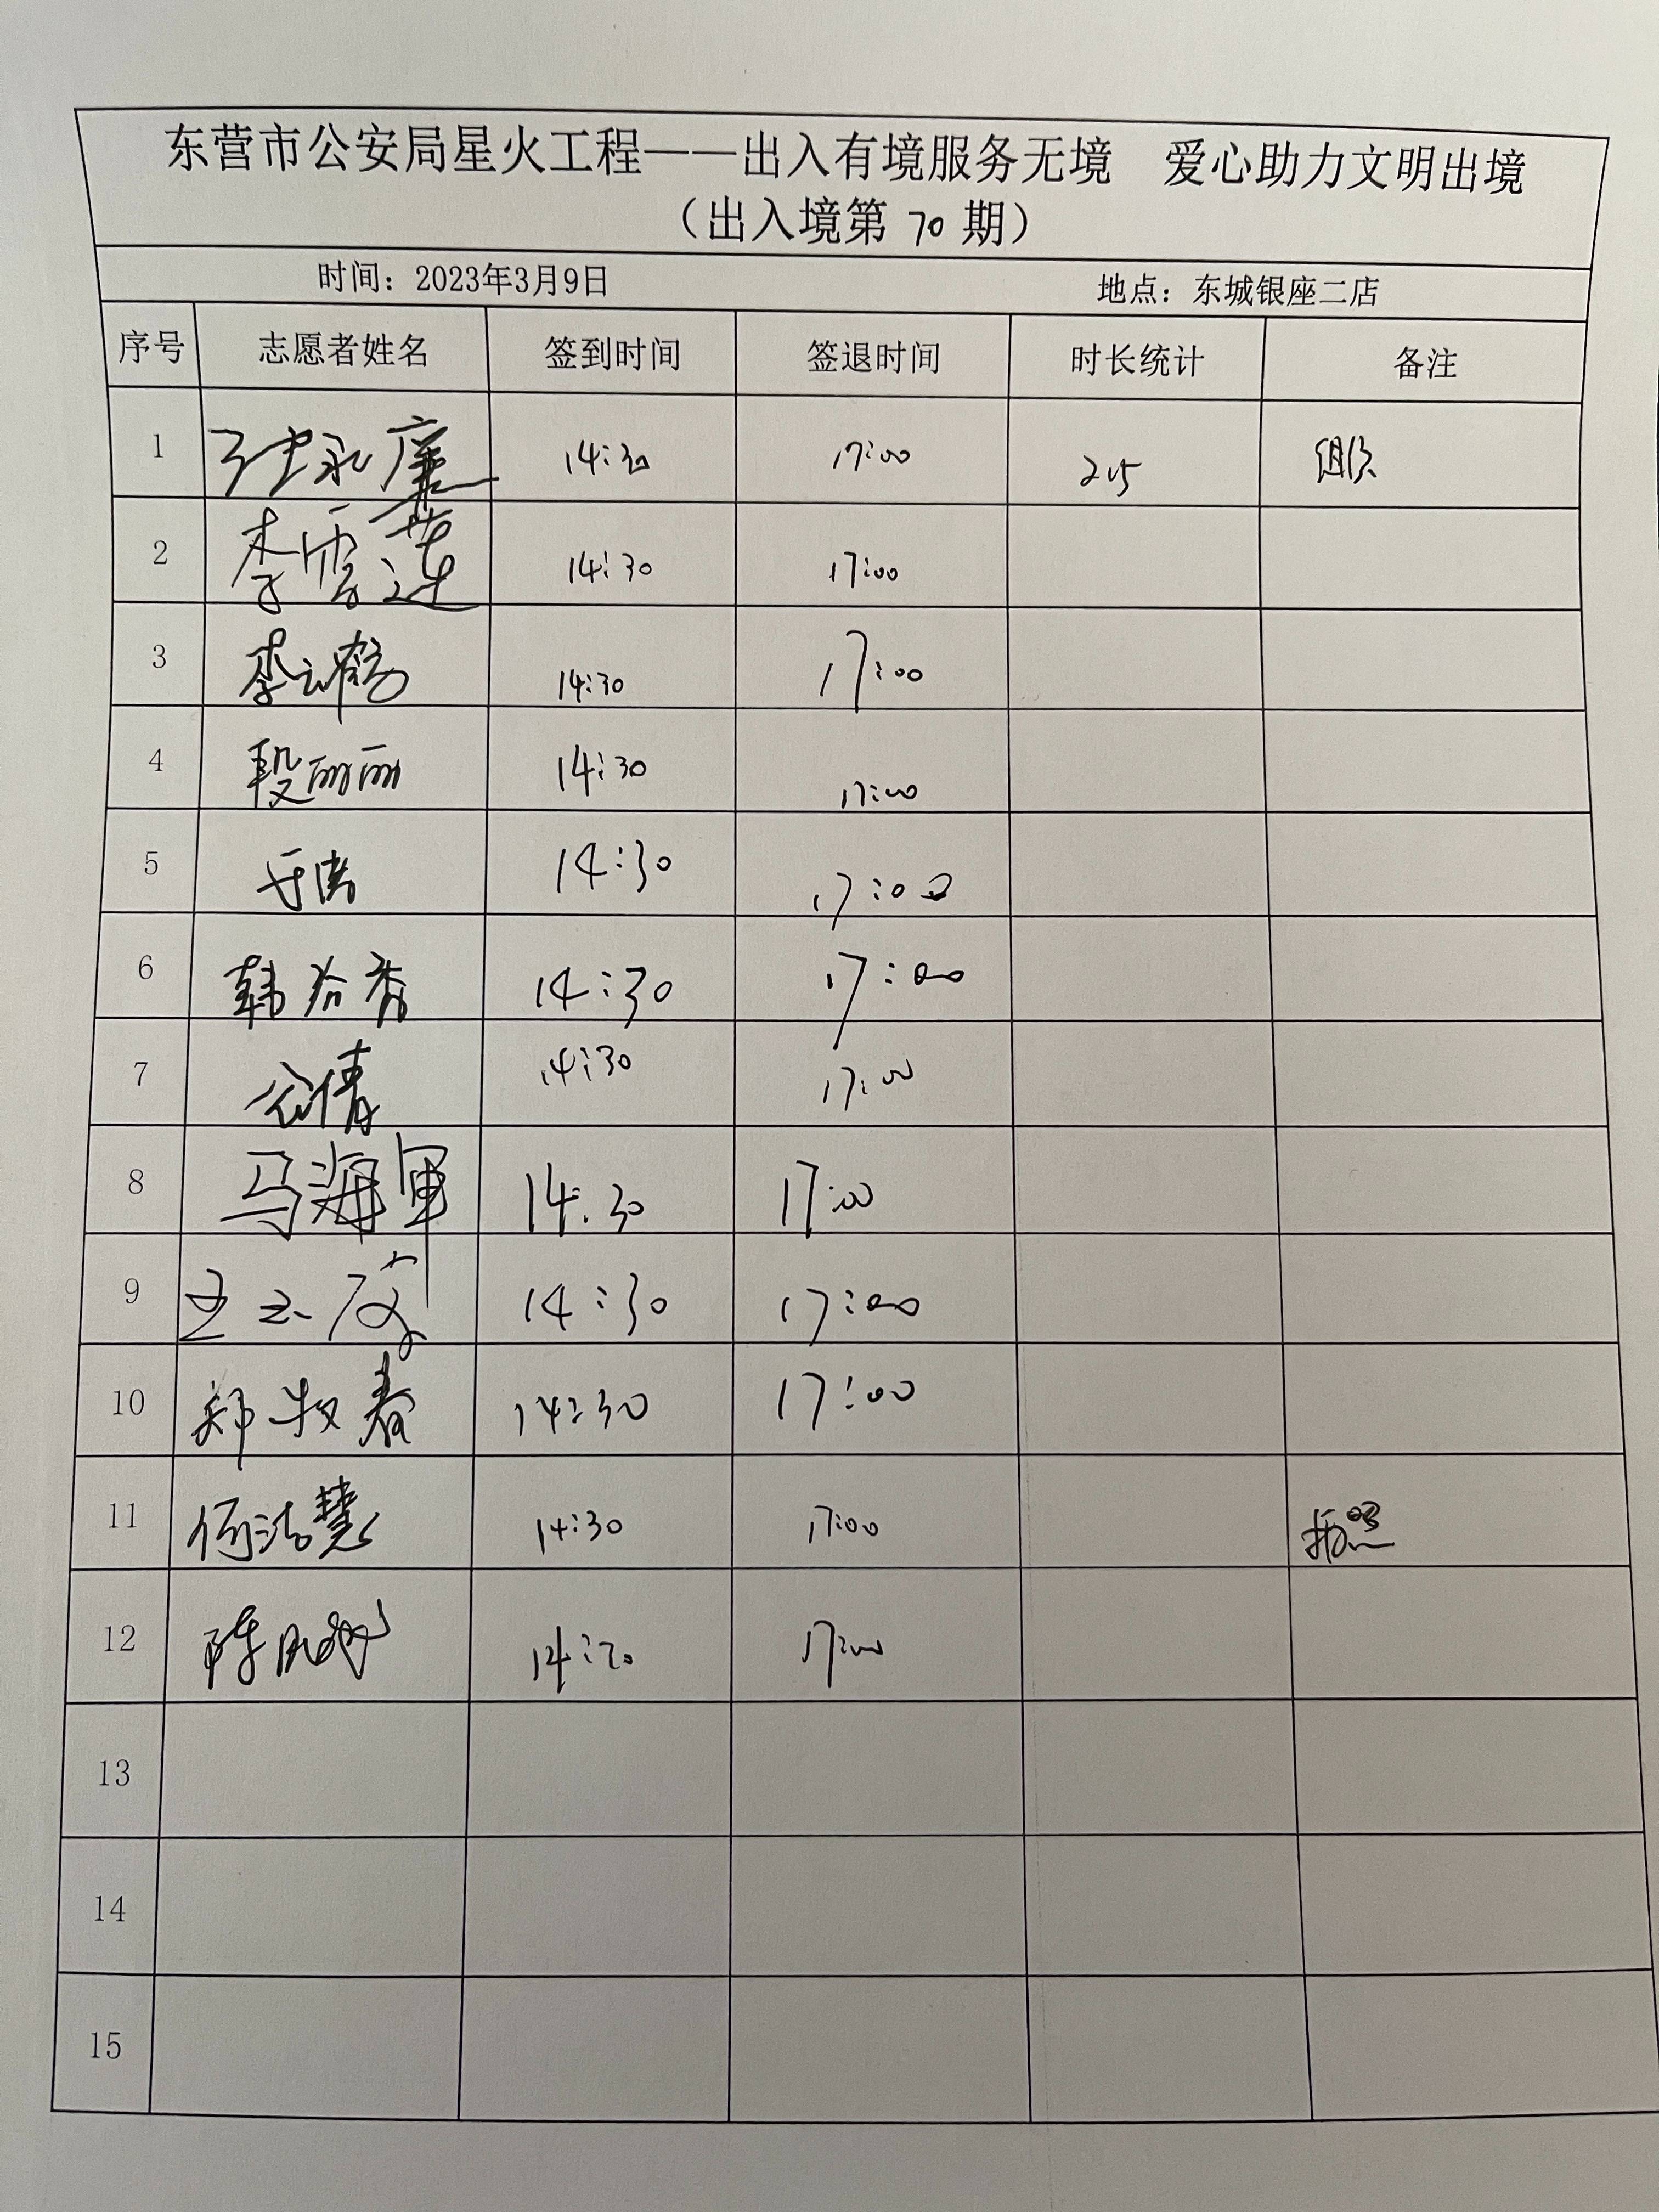 东营市公安局星火工程——出入有境服务无境 爱心助力文明出境
（出入境第 70 期）
时间：2023年3月9日 地点：东城银座二店
序号 志愿者姓名 签到时间 签退时间 时长统计 备注
1 14:30 17:00 2.5
2 李雪莲 14:30 17:00
3 李云鹤 14:30 17:00
4 段丽丽 14:30 17:00
5 14:30 17:00
6 韩 秀 14:30 17:00
7 公倩 14:30 17:00
8 马海軍 14:30 17:00
9 14:30 17:00
10 郑牧春 14:30 17:00
11 何洁慧 14:30 17:00 拍照
12 陈 14:30 17:00
13
14
15